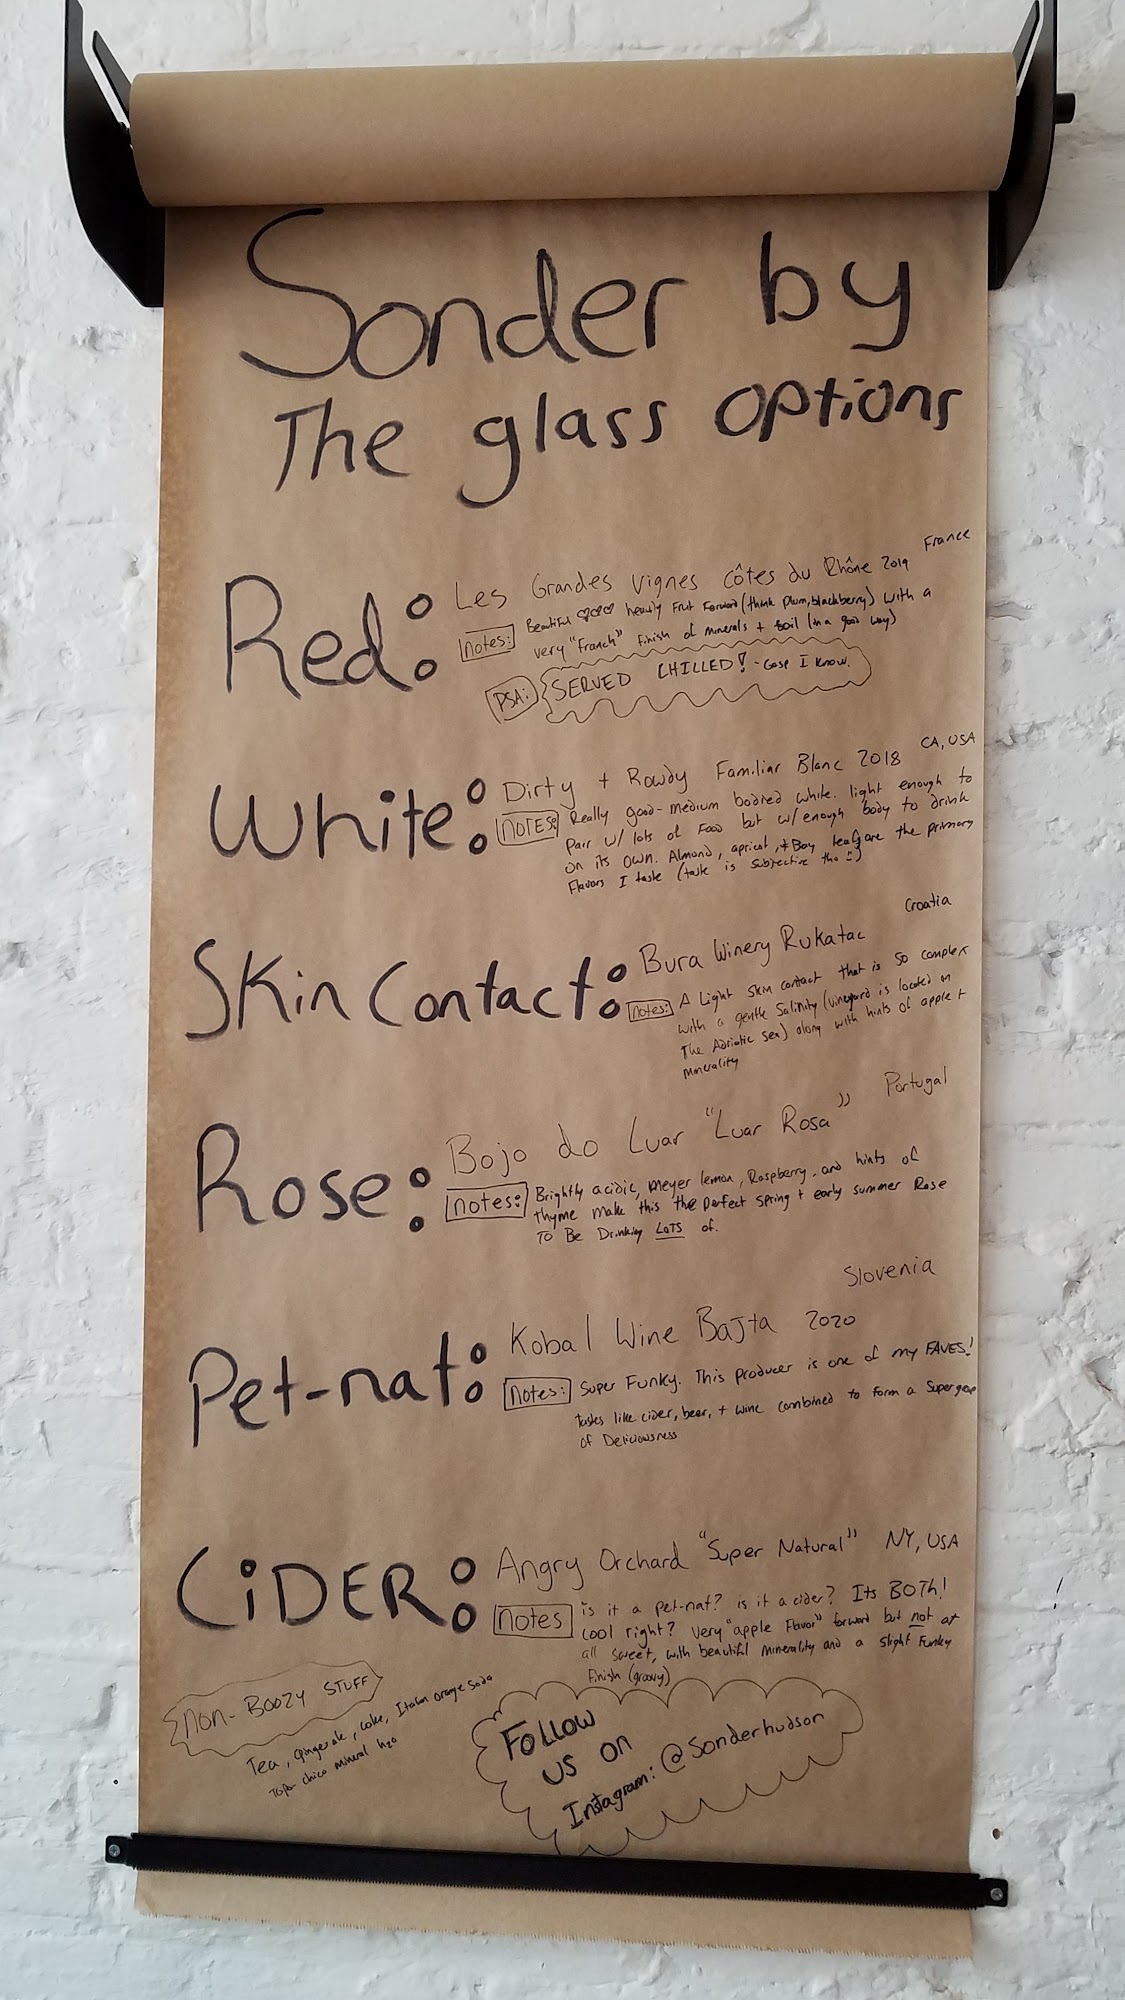 Sonder by
The glass options
Red:
Les Grandes Vignes Côtes du Rhône 2019
France
Notes:
Beautiful ♡♡♡ heavily fruit forward (think plum, blackberry) with a
very "French" finish of minerals + soil (in a good way)
PSA:
SERVED CHILLED! - Gasp I know.
White:
Dirty + Rowdy Familiar Blanc 2018
CA, USA
NOTES:
Really good- medium bodied white. light enough to
Pair w/ lots of Food but w/ enough body to drink
on its own. Almond, apricot, + Bay leaf are the primary
Flavors I taste (taste is subjective tho :))
Skin Contact:
Bura Winery Rukatac
Croatia
Notes:
A Light skin contact that is so complex
with a gentle Salinity (vineyard is located on
The Adriatic Sea) along with hints of apple +
minerality
Rose:
Bojo do Luar "Luar Rosa"
Portugal
notes:
Brightly acidic, meyer lemon, Raspberry, and hints of
thyme make this the perfect spring + early summer Rose
TO Be Drinking LOTS of.
Pet-nat:
Kobal Wine Bajta 2020
Slovenia
Notes:
Super Funky. This producer is one of my FAVES!
tastes like cider, beer, + wine combined to form a Supergroup
of Deliciousness
CiDER:
Angry Orchard "Super Natural"
NY, USA
Notes
is it a pet-nat? is it a cider? Its BOTH!
cool right? Very "apple Flavor" forward but not at
all sweet, with beautiful minerality and a slight Funky
Finish (groovy)
Non-BOOZY STUFF
Tea, gingerale, coke, Italian orange soda
Topo chico mineral h2o
FOLLOW
US ON
Instagram: @Sonderhudson